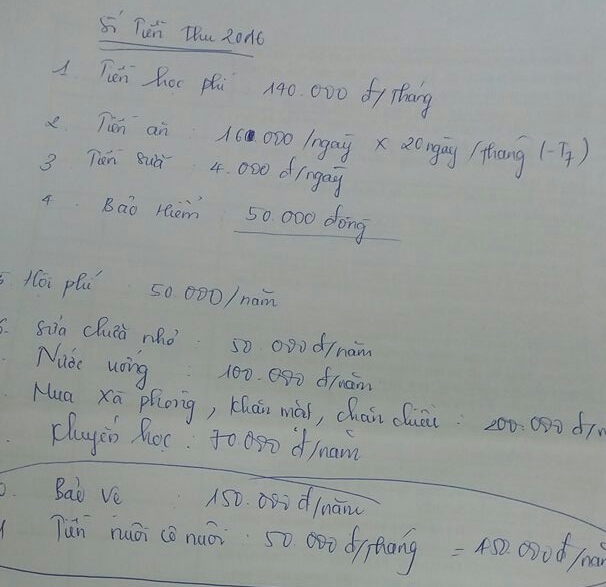 Số Tiền Thu 2016
1. Tiền học phí 140.000 đ/tháng
2. Tiền ăn : 160.000/ngày x 20 ngày/tháng (-T7)
3 Tiền sữa : 4.000 đ/ngày
4. Bảo Hiểm 50.000 đồng
5. Hội phí 50.000/năm
6. Sửa chữa nhỏ : 50.000 đ/năm
. Nước uống : 100.000 đ/năm
. Mua xà phòng, khăn mặt, chăn chiếu : 200.000 đ/n
. Khuyến học : 70.000 đ/năm
0. Bảo vệ : 150.000 đ/năm
1 Tiền nuôi cô nuôi : 50.000 đ/tháng = 450.000 đ/năm